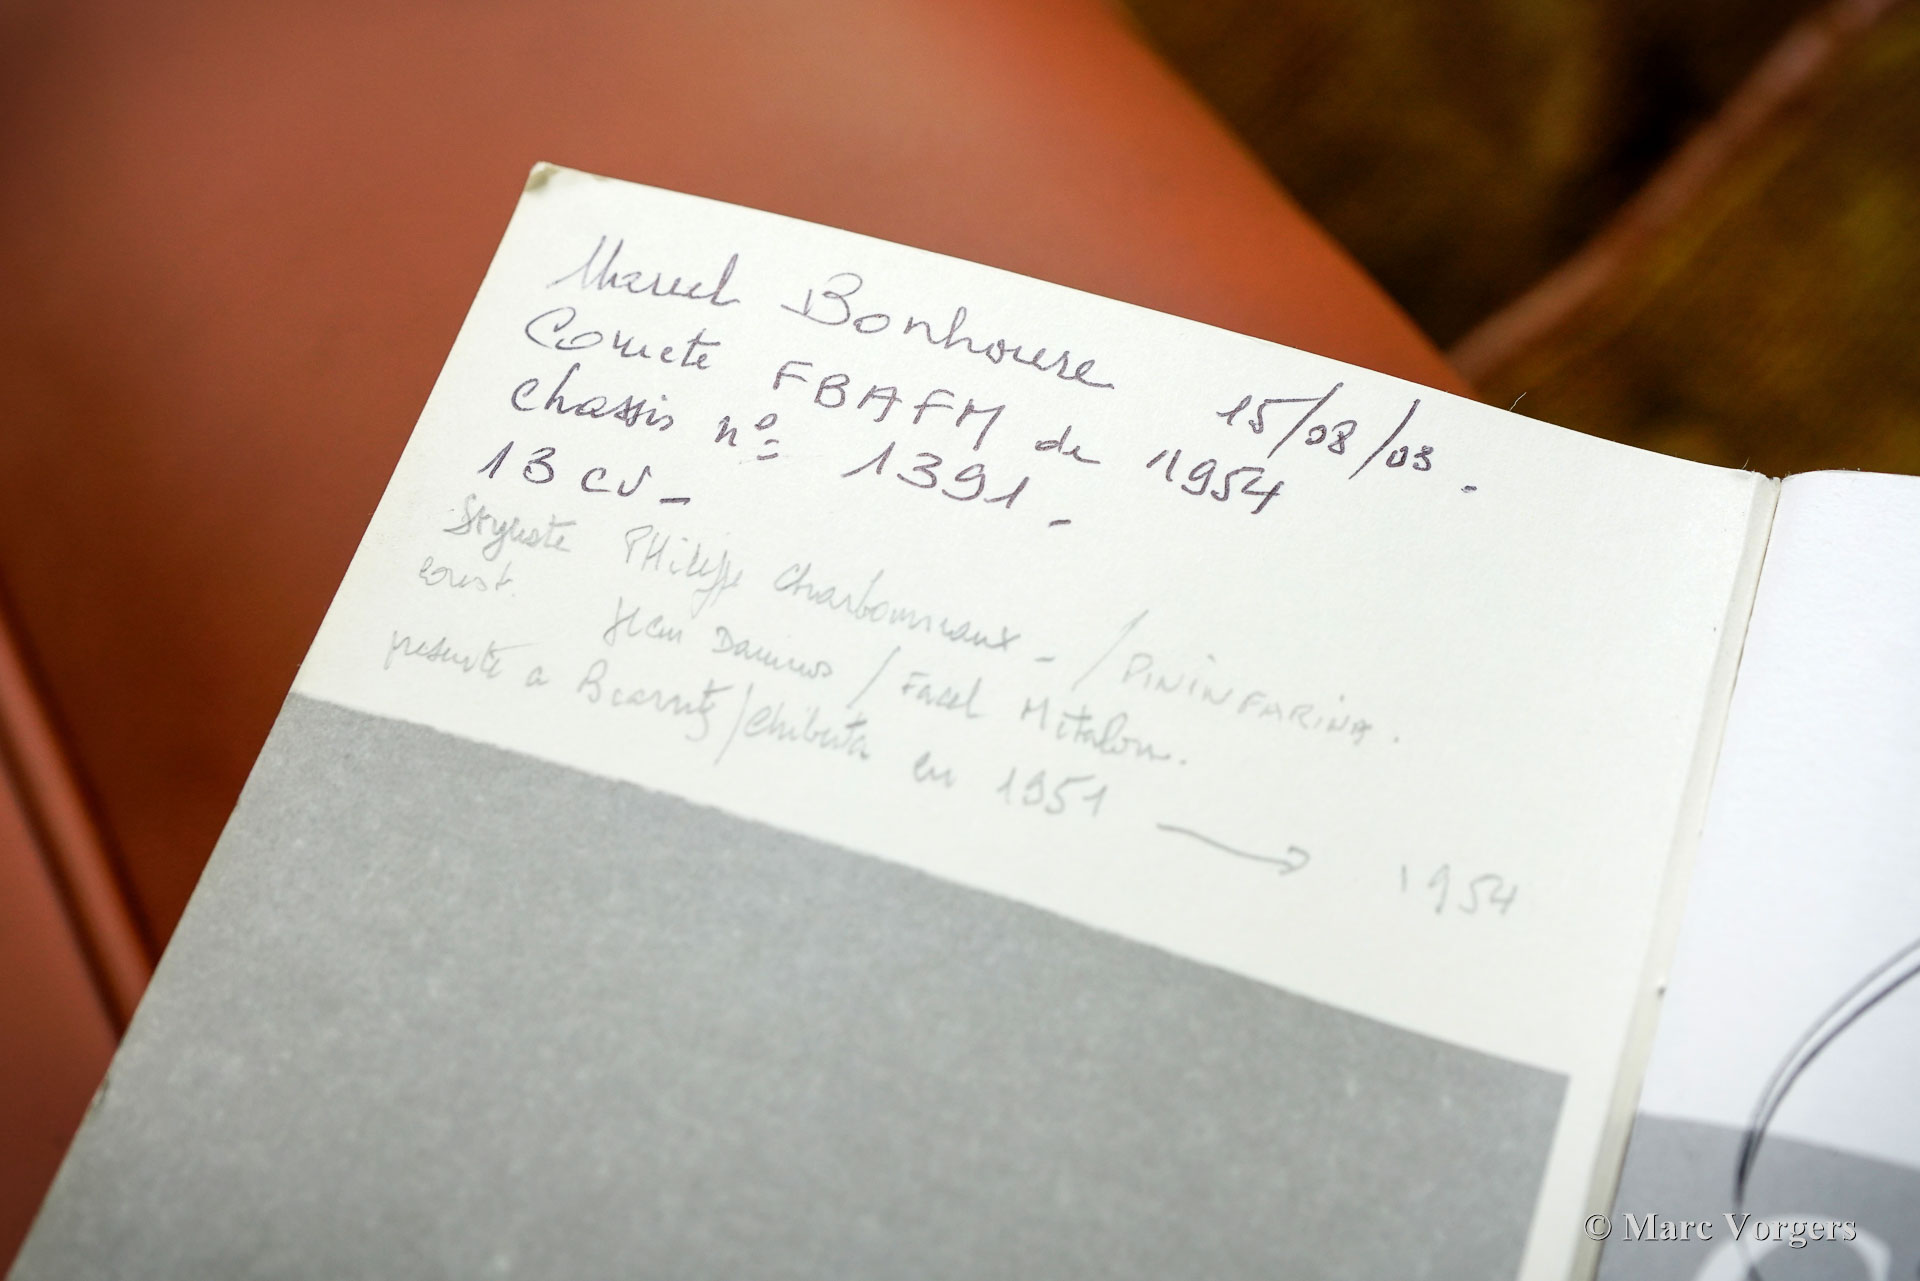 Marcel Bonhoure 15/08/03.
Comete FBAFM de 1954
chassis nº 1391 -
13 cv -
Styliste PHilippe Charbonneaux - / PININFARINA.
const. Jean Daninos / Facel Métalon.
présenté a Biarritz/Chiberta en 1951 → 1954
© Marc Vorgers